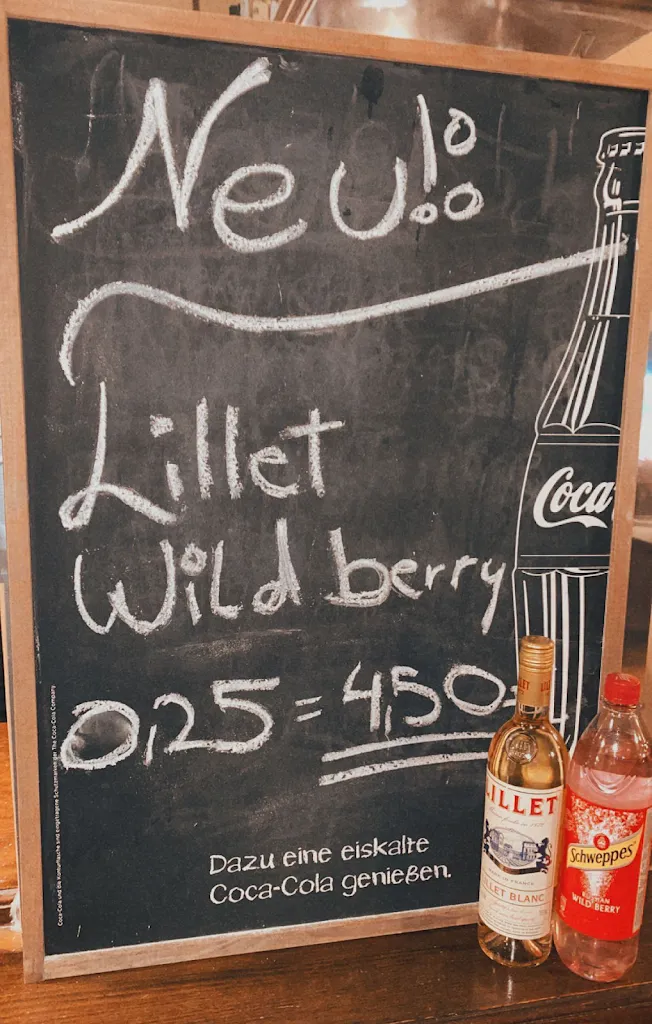 Neu!%
Lillet
Wild berry
0,25 = 4,50
Coca
Dazu eine eiskalte
Coca-Cola genießen.
Coca-Cola und die Konturflasche sind eingetragene Schutzmarken der The Coca-Cola Company
LILLET
LILLET BLANC
Schweppes
RUSSIAN
WILD BERRY